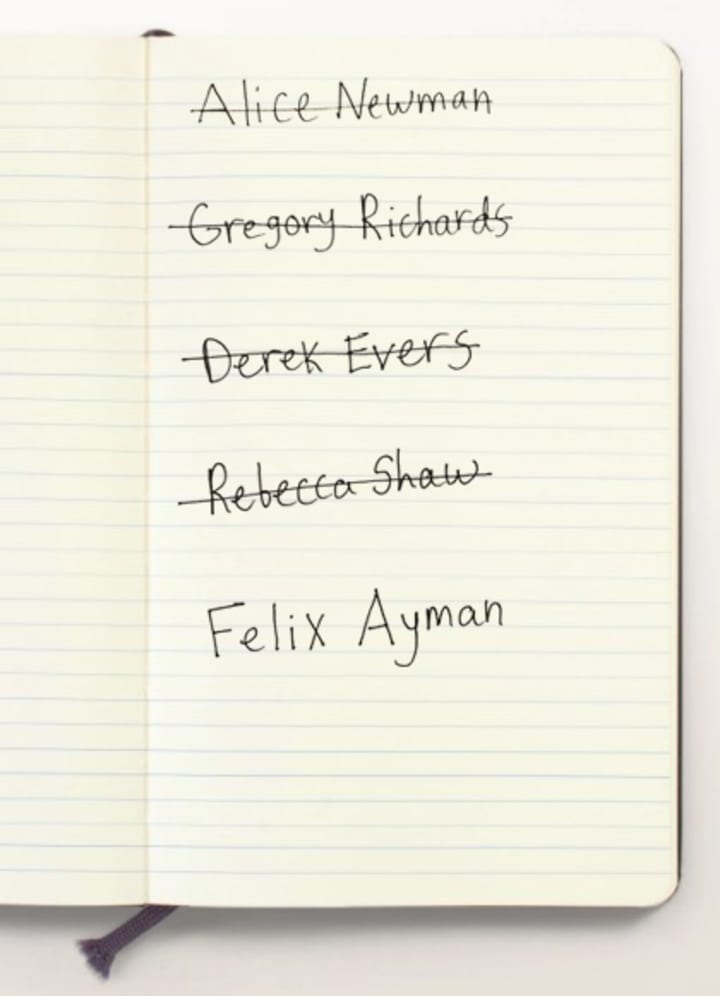 Alice Newman
Gregory Richards
Derek Evers
Rebecca Shaw
Felix Ayman